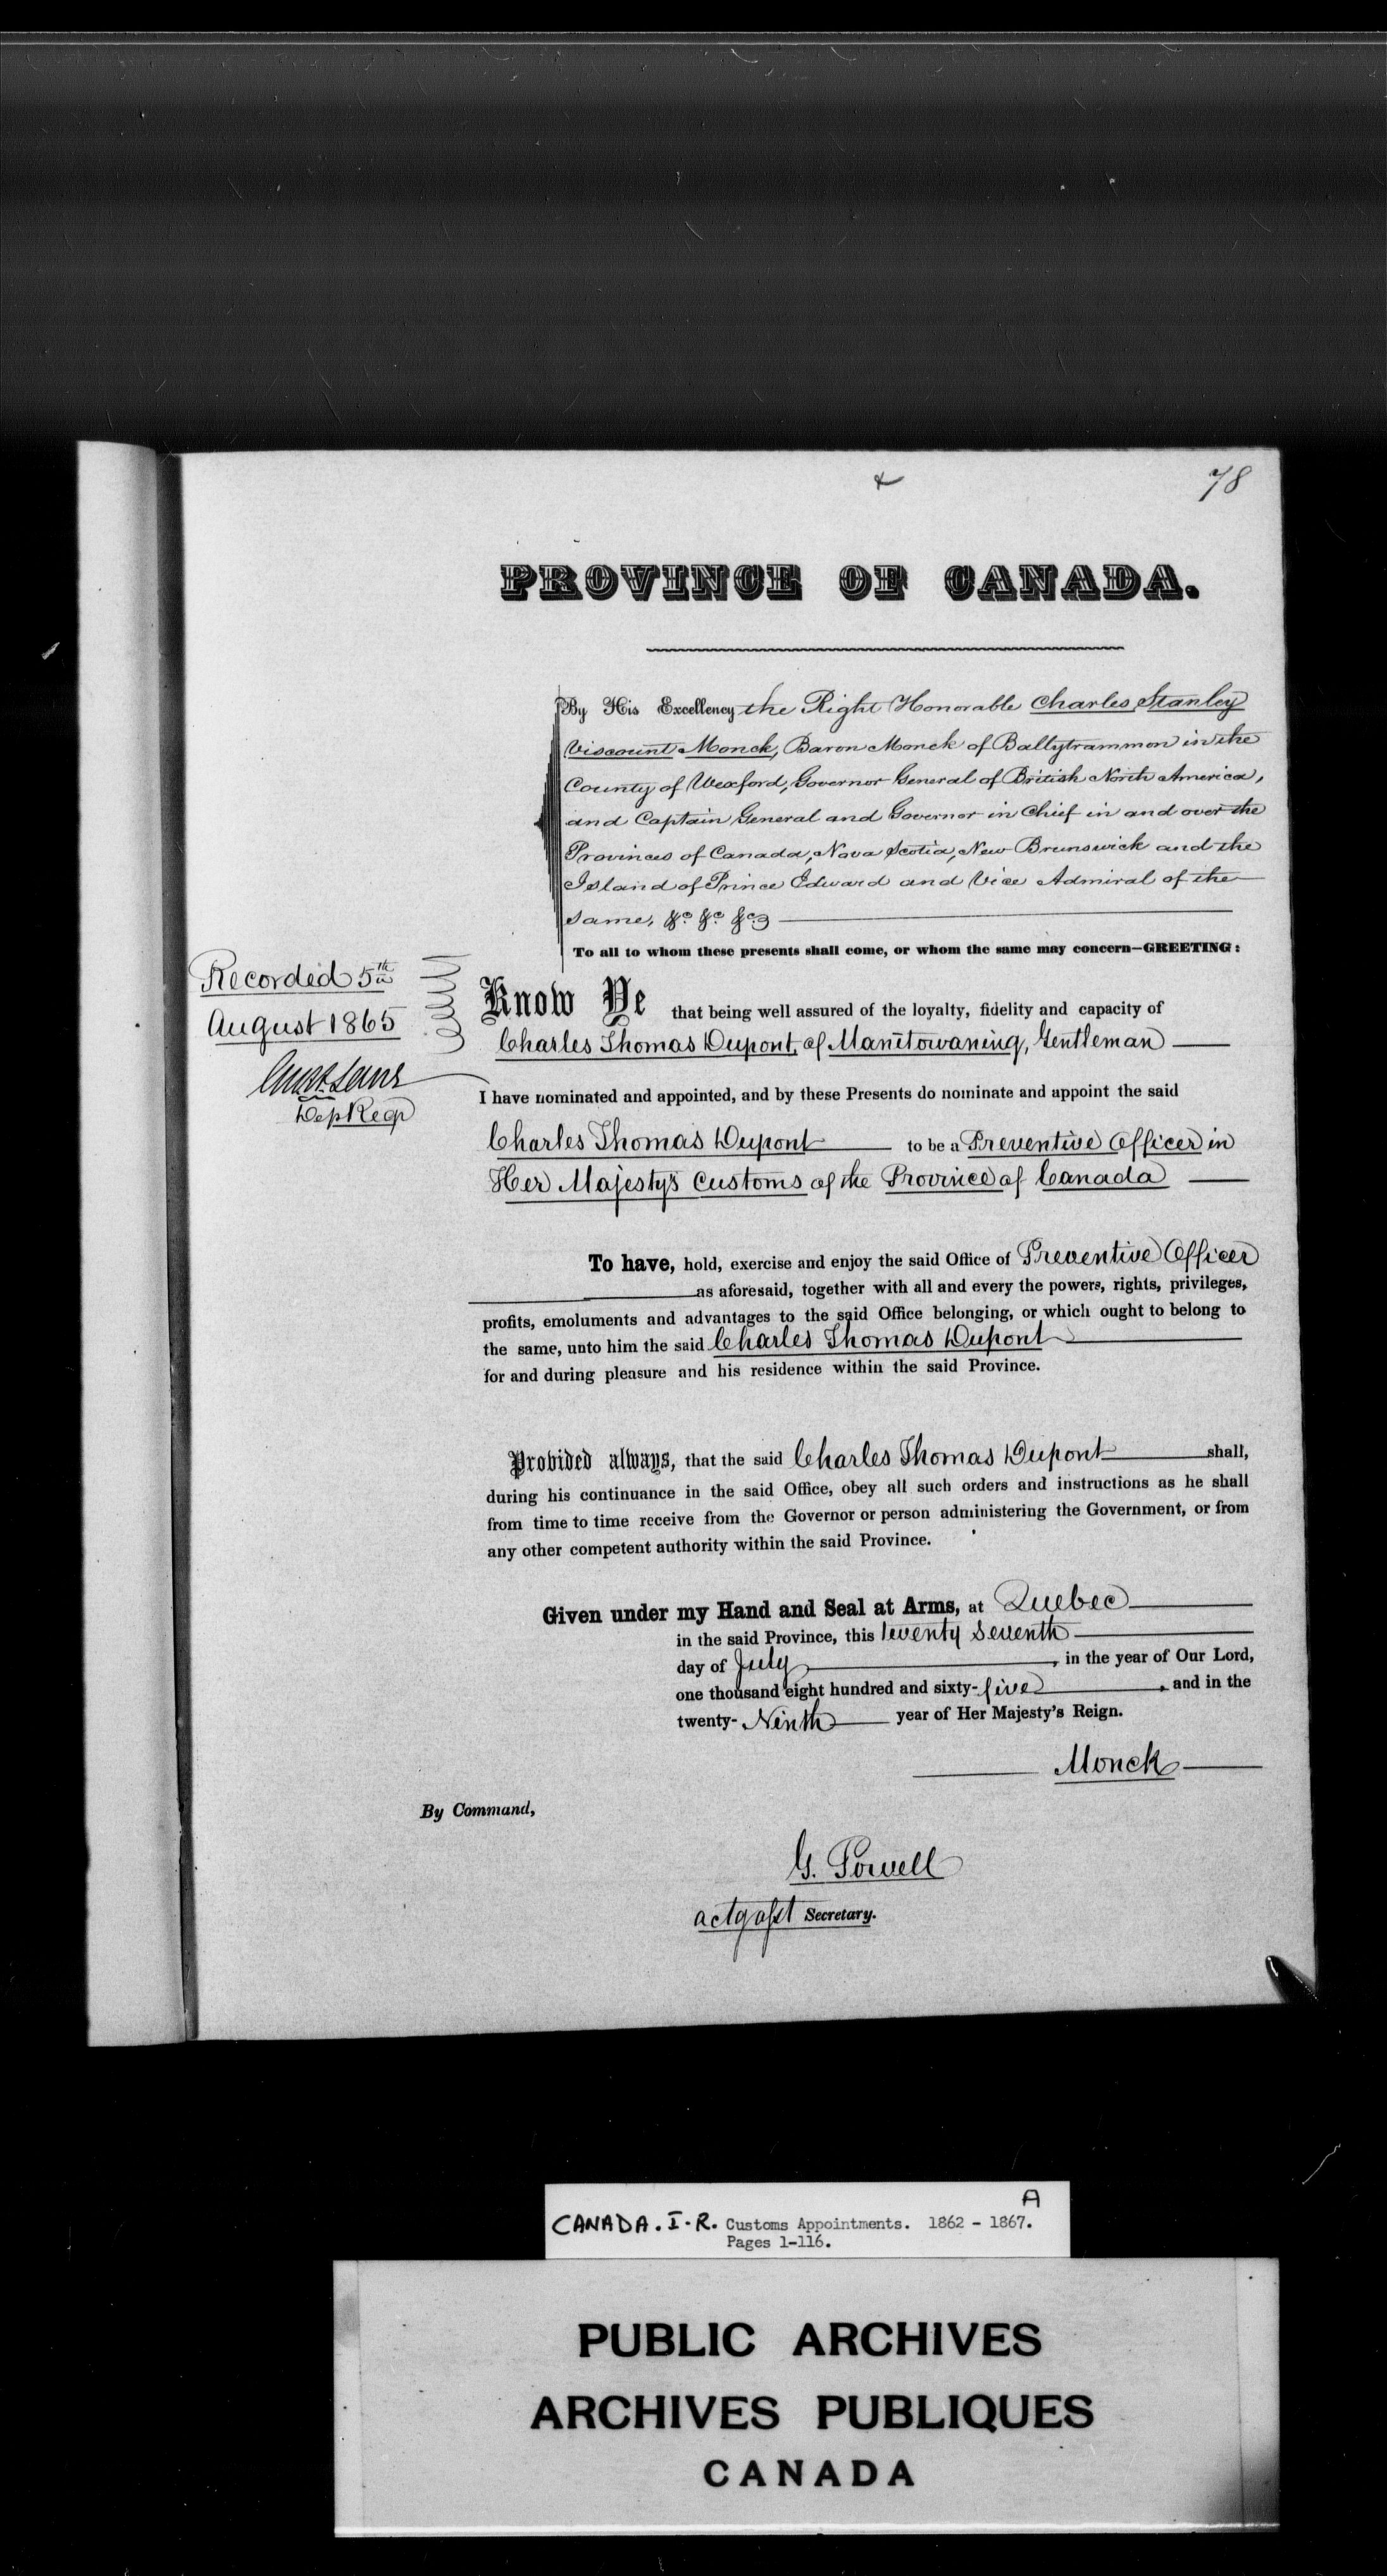 78
PROVINCE OF CANADA.
By His Excellency the Right Honorable Charles Stanley
Viscount Monck, Baron Monck of Ballytrammon in the
County of Wexford, Governor General of British North America,
and Captain General and Governor in Chief in and over the
Provinces of Canada, Nova Scotia, New Brunswick and the
Island of Prince Edward and Vice Admiral of the
same, &c. &c. &c.
To all to whom these presents shall come, or whom the same may concern—GREETING:
Recorded 5th
August 1865
Dep Regr
Know Ye that being well assured of the loyalty, fidelity and capacity of
Charles Thomas Dupont, of Manitowaning, Gentleman
I have nominated and appointed, and by these Presents do nominate and appoint the said
Charles Thomas Dupont to be a Preventive Officer in
Her Majesty's Customs of the Province of Canada
To have, hold, exercise and enjoy the said Office of Preventive Officer
as aforesaid, together with all and every the powers, rights, privileges,
profits, emoluments and advantages to the said Office belonging, or which ought to belong to
the same, unto him the said Charles Thomas Dupont
for and during pleasure and his residence within the said Province.
Provided always, that the said Charles Thomas Dupont shall,
during his continuance in the said Office, obey all such orders and instructions as he shall
from time to time receive from the Governor or person administering the Government, or from
any other competent authority within the said Province.
Given under my Hand and Seal at Arms, at Quebec
in the said Province, this twenty seventh
day of July, in the year of Our Lord,
one thousand eight hundred and sixty-five, and in the
twenty-Ninth year of Her Majesty's Reign.
Monck
By Command,
G. Powell
actg asst Secretary.
A
CANADA. I-R. Customs Appointments. 1862 - 1867.
Pages 1-116.
PUBLIC ARCHIVES
ARCHIVES PUBLIQUES
CANADA